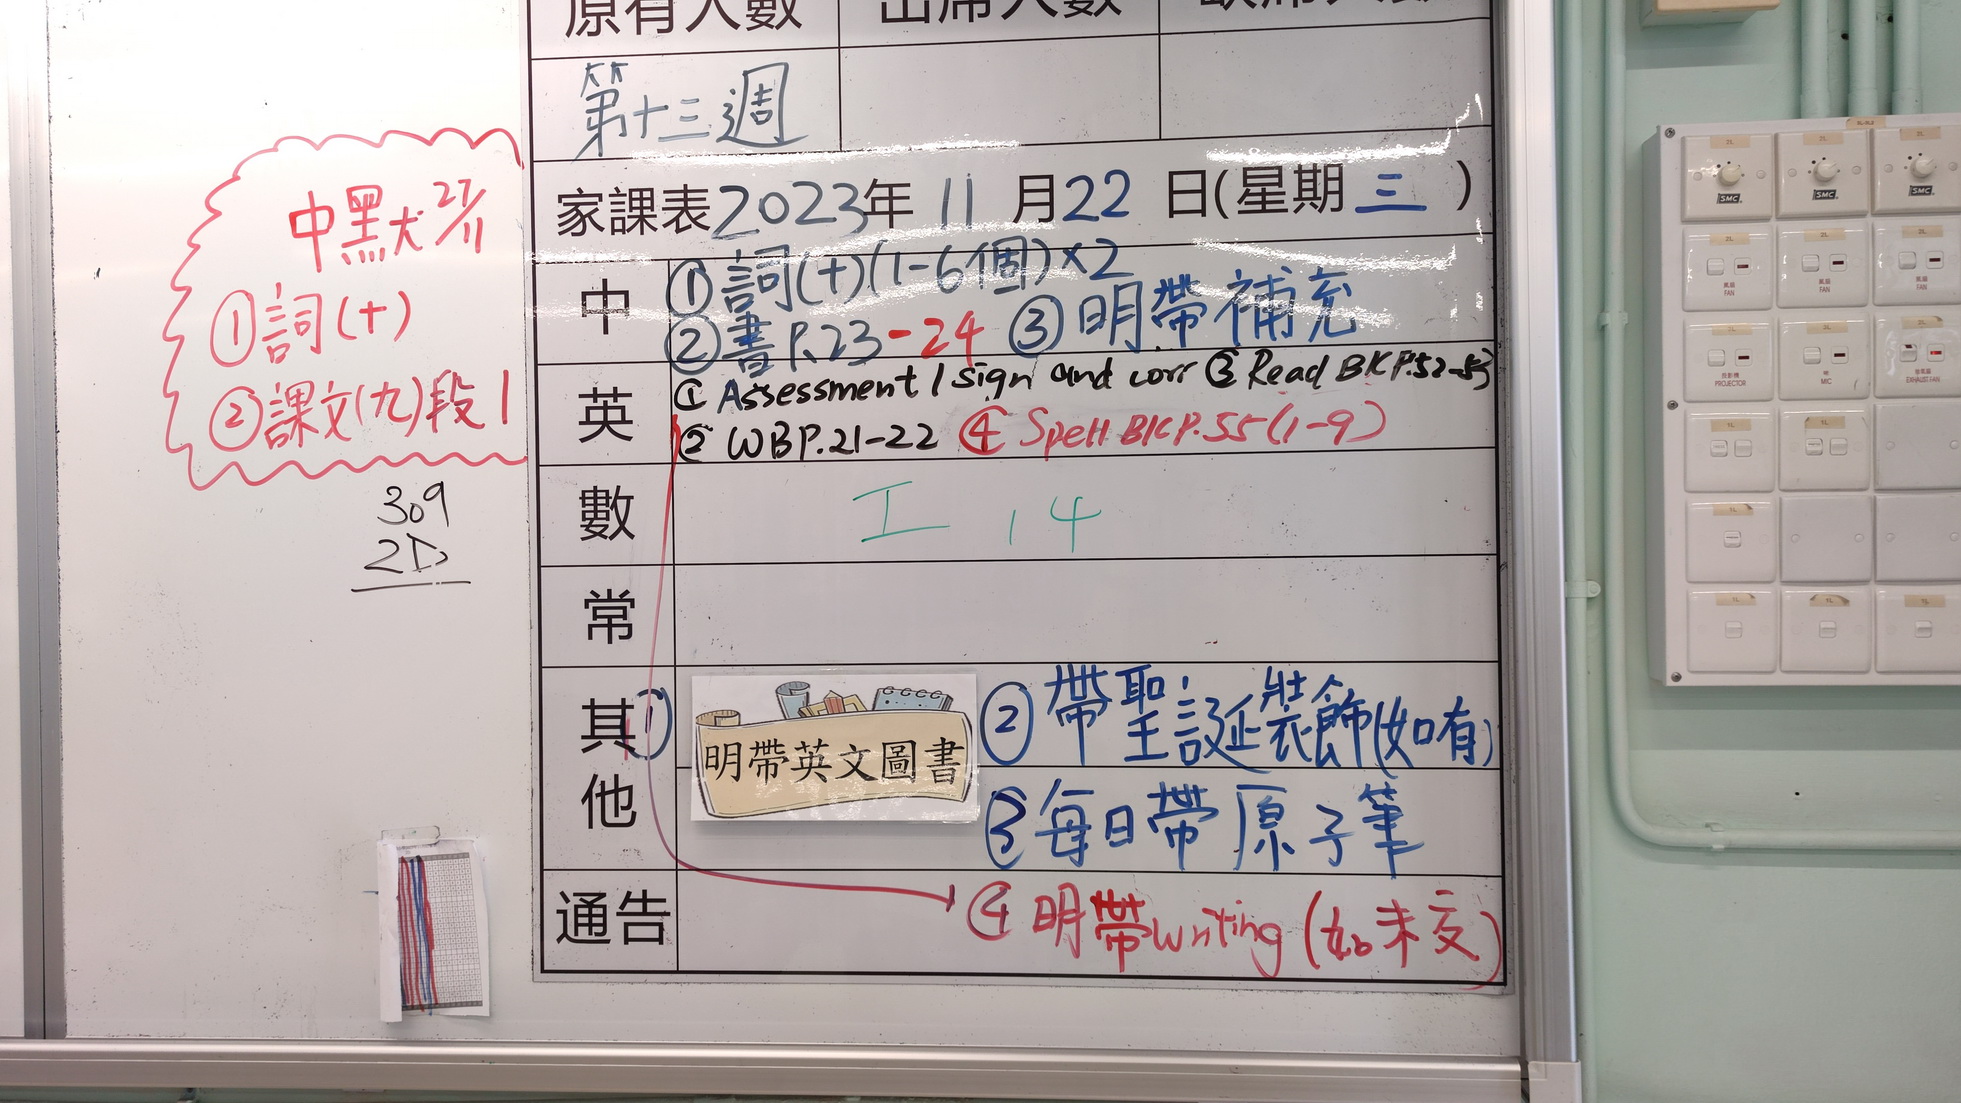 原有人數
第十三週
家課表2023年11月22日(星期三)
中
①詞(十)(1-6個)×2
②書P.23-24 ③明帶補充
英
① Assessment 1 sign and corr ③ Read BK P.52-53
② WB P.21-22 ④ Spell BK P.55(1-9)
數
工 14
常
其他
①
明帶英文圖書
②帶聖誕裝飾(如有)
③每日帶原子筆
通告
④明帶writing(如未交)
中默 27/11
①詞(十)
②課文(九)段1
309
2D
SMC
SMC
SMC
2L
2L
2L
風扇
FAN
風扇
FAN
風扇
FAN
投影機
PROJECTOR
MIC
抽氣扇
EXHAUST FAN
1L
1L
1L
1L
1L
1L